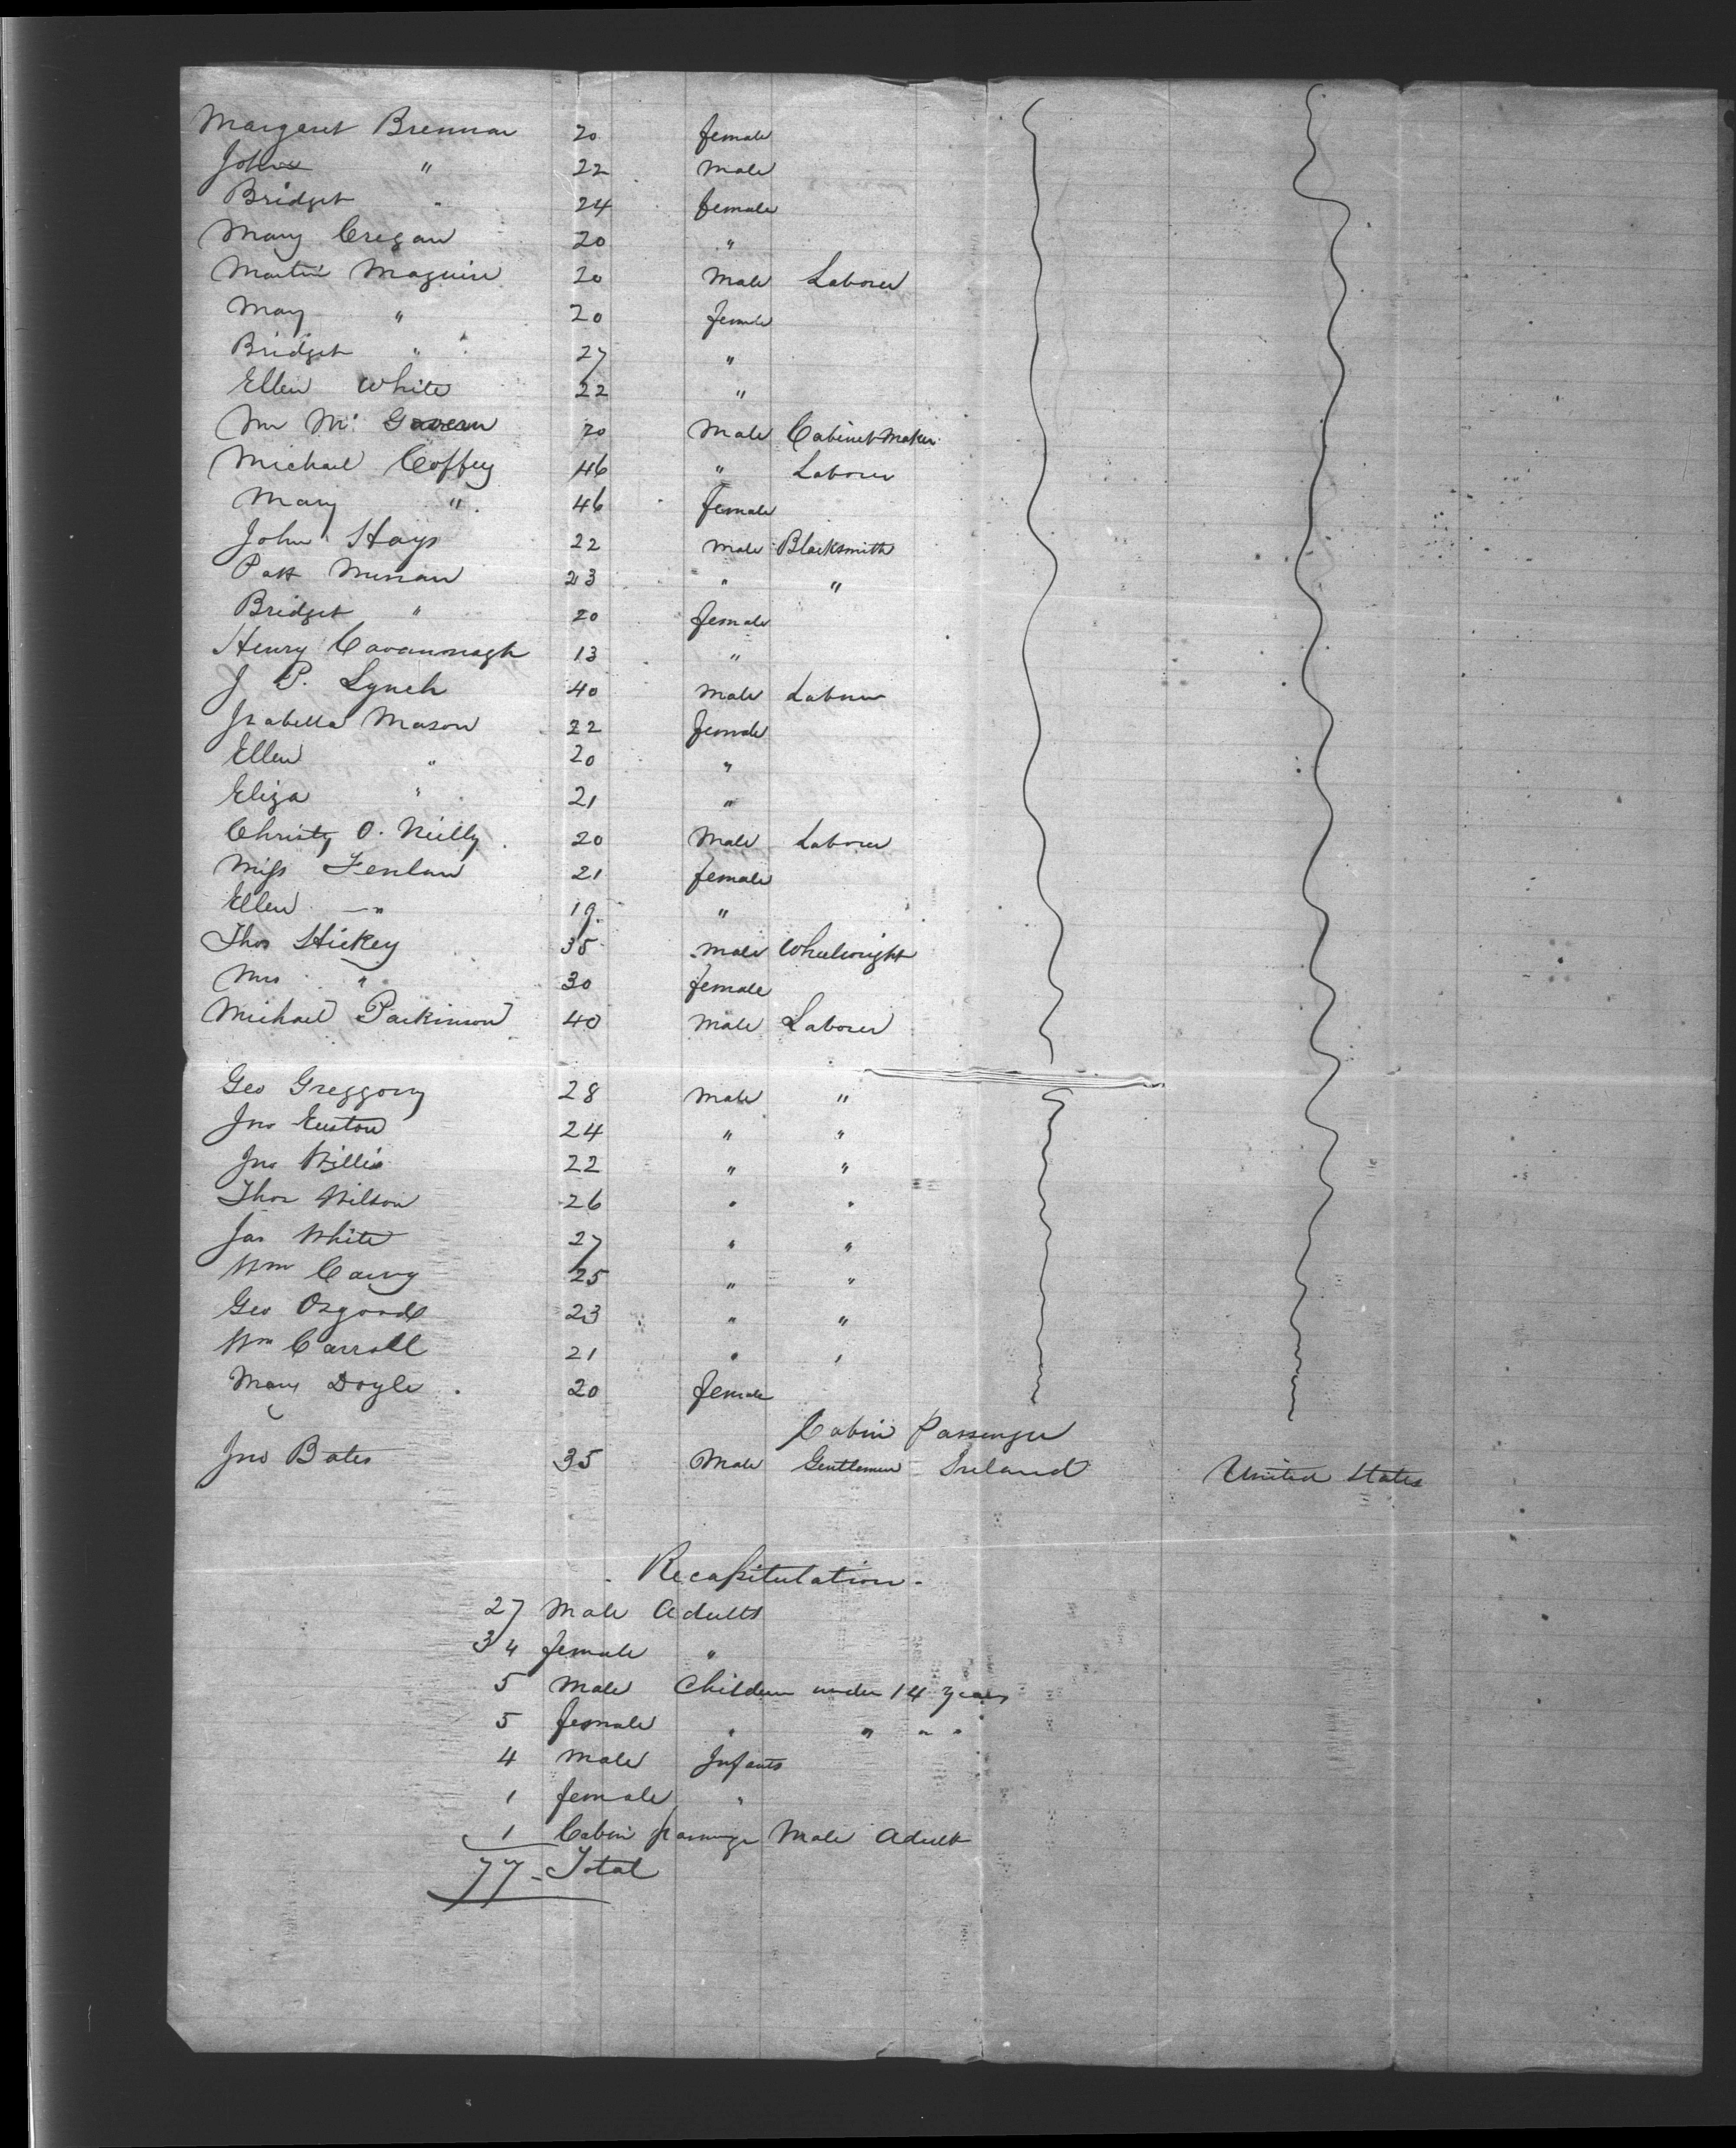 Margaret Brennan 20 female
John " 22 Male
Bridget " 24 female
Mary Cregan 20 "
Martin Maguire 20 Male Laborer
Mary " 20 female
Bridget " 27 "
Ellen White 22 "
Mc Govern 20 Male Cabinet Maker
Michael Coffey 46 " Laborer
Mary " 46 female
John Hays 22 Male Blacksmith
Patt 23 " "
Bridget " 20 female
Henry Cavannagh 13 "
J P. Lynch 40 Male Laborer
Isabella Mason 22 female
Ellen " 20 "
Eliza " 21 "
Christy O. Nielly 20 Male Laborer
Miss Fenlan 21 female
Ellen — " 19 "
Thos Hickey 35 Male Wheelwright
Mrs " 30 female
Michael Parkinson 40 Male Laborer
Geo Greggory 28 Male "
Jno Euston 24 " "
Jno Willis 22 " "
Thos Wilson 26 " "
Jas White 27 " "
Wm 25 " "
Geo Osgood 23 " "
Wm Carroll 21 " "
Mary Doyle 20 female
Cabin Passenger
Jno Bates 35 Male Gentleman Ireland United States
Recapitulation
27 Male Adults
34 female "
5 Male Children under 14 years
5 female " " " "
4 Male Infants
1 female "
1 Cabin passenger Male Adult
77 Total